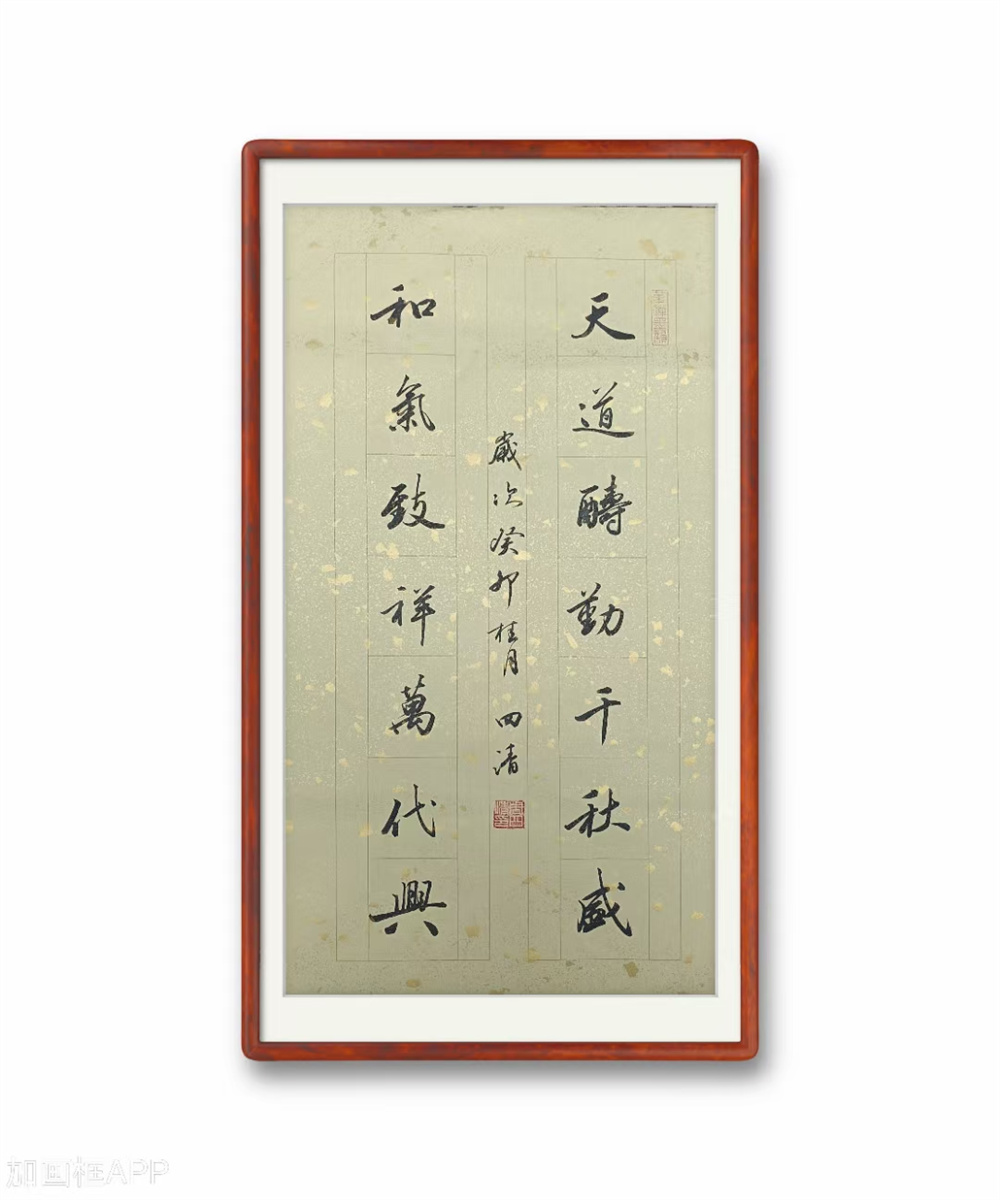 天道醻勤千秋盛
歲次癸卯桂月 四清
和氣致祥萬代興
加画框APP